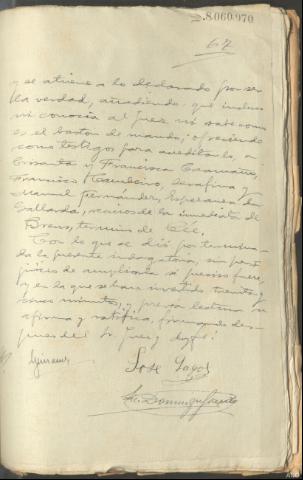 8.060.970
67
y se atiene a lo declarado por ser
la verdad, añadiendo que incluso
ni conocia al Juez ni sabe como
es el baston de mando; ofreciendo
como testigos para acreditarlo, a
y Francisca Caamaño,
Francisco Serafina y
Manuel Fernández, Esperanza
Gallarda, vecinos de la inmediata de
Brens, termino de Cée.
Con lo que se dió por termina-
da la presente indagatoria, sin perj
juicio de ampliarla si preciso fuere,
y en la que se han invertido treinta y
cinco minutos, y previa lectura se
afirma y ratifica, firmando des-
pues del Sr. Juez, doy fé:
Jose Lagos